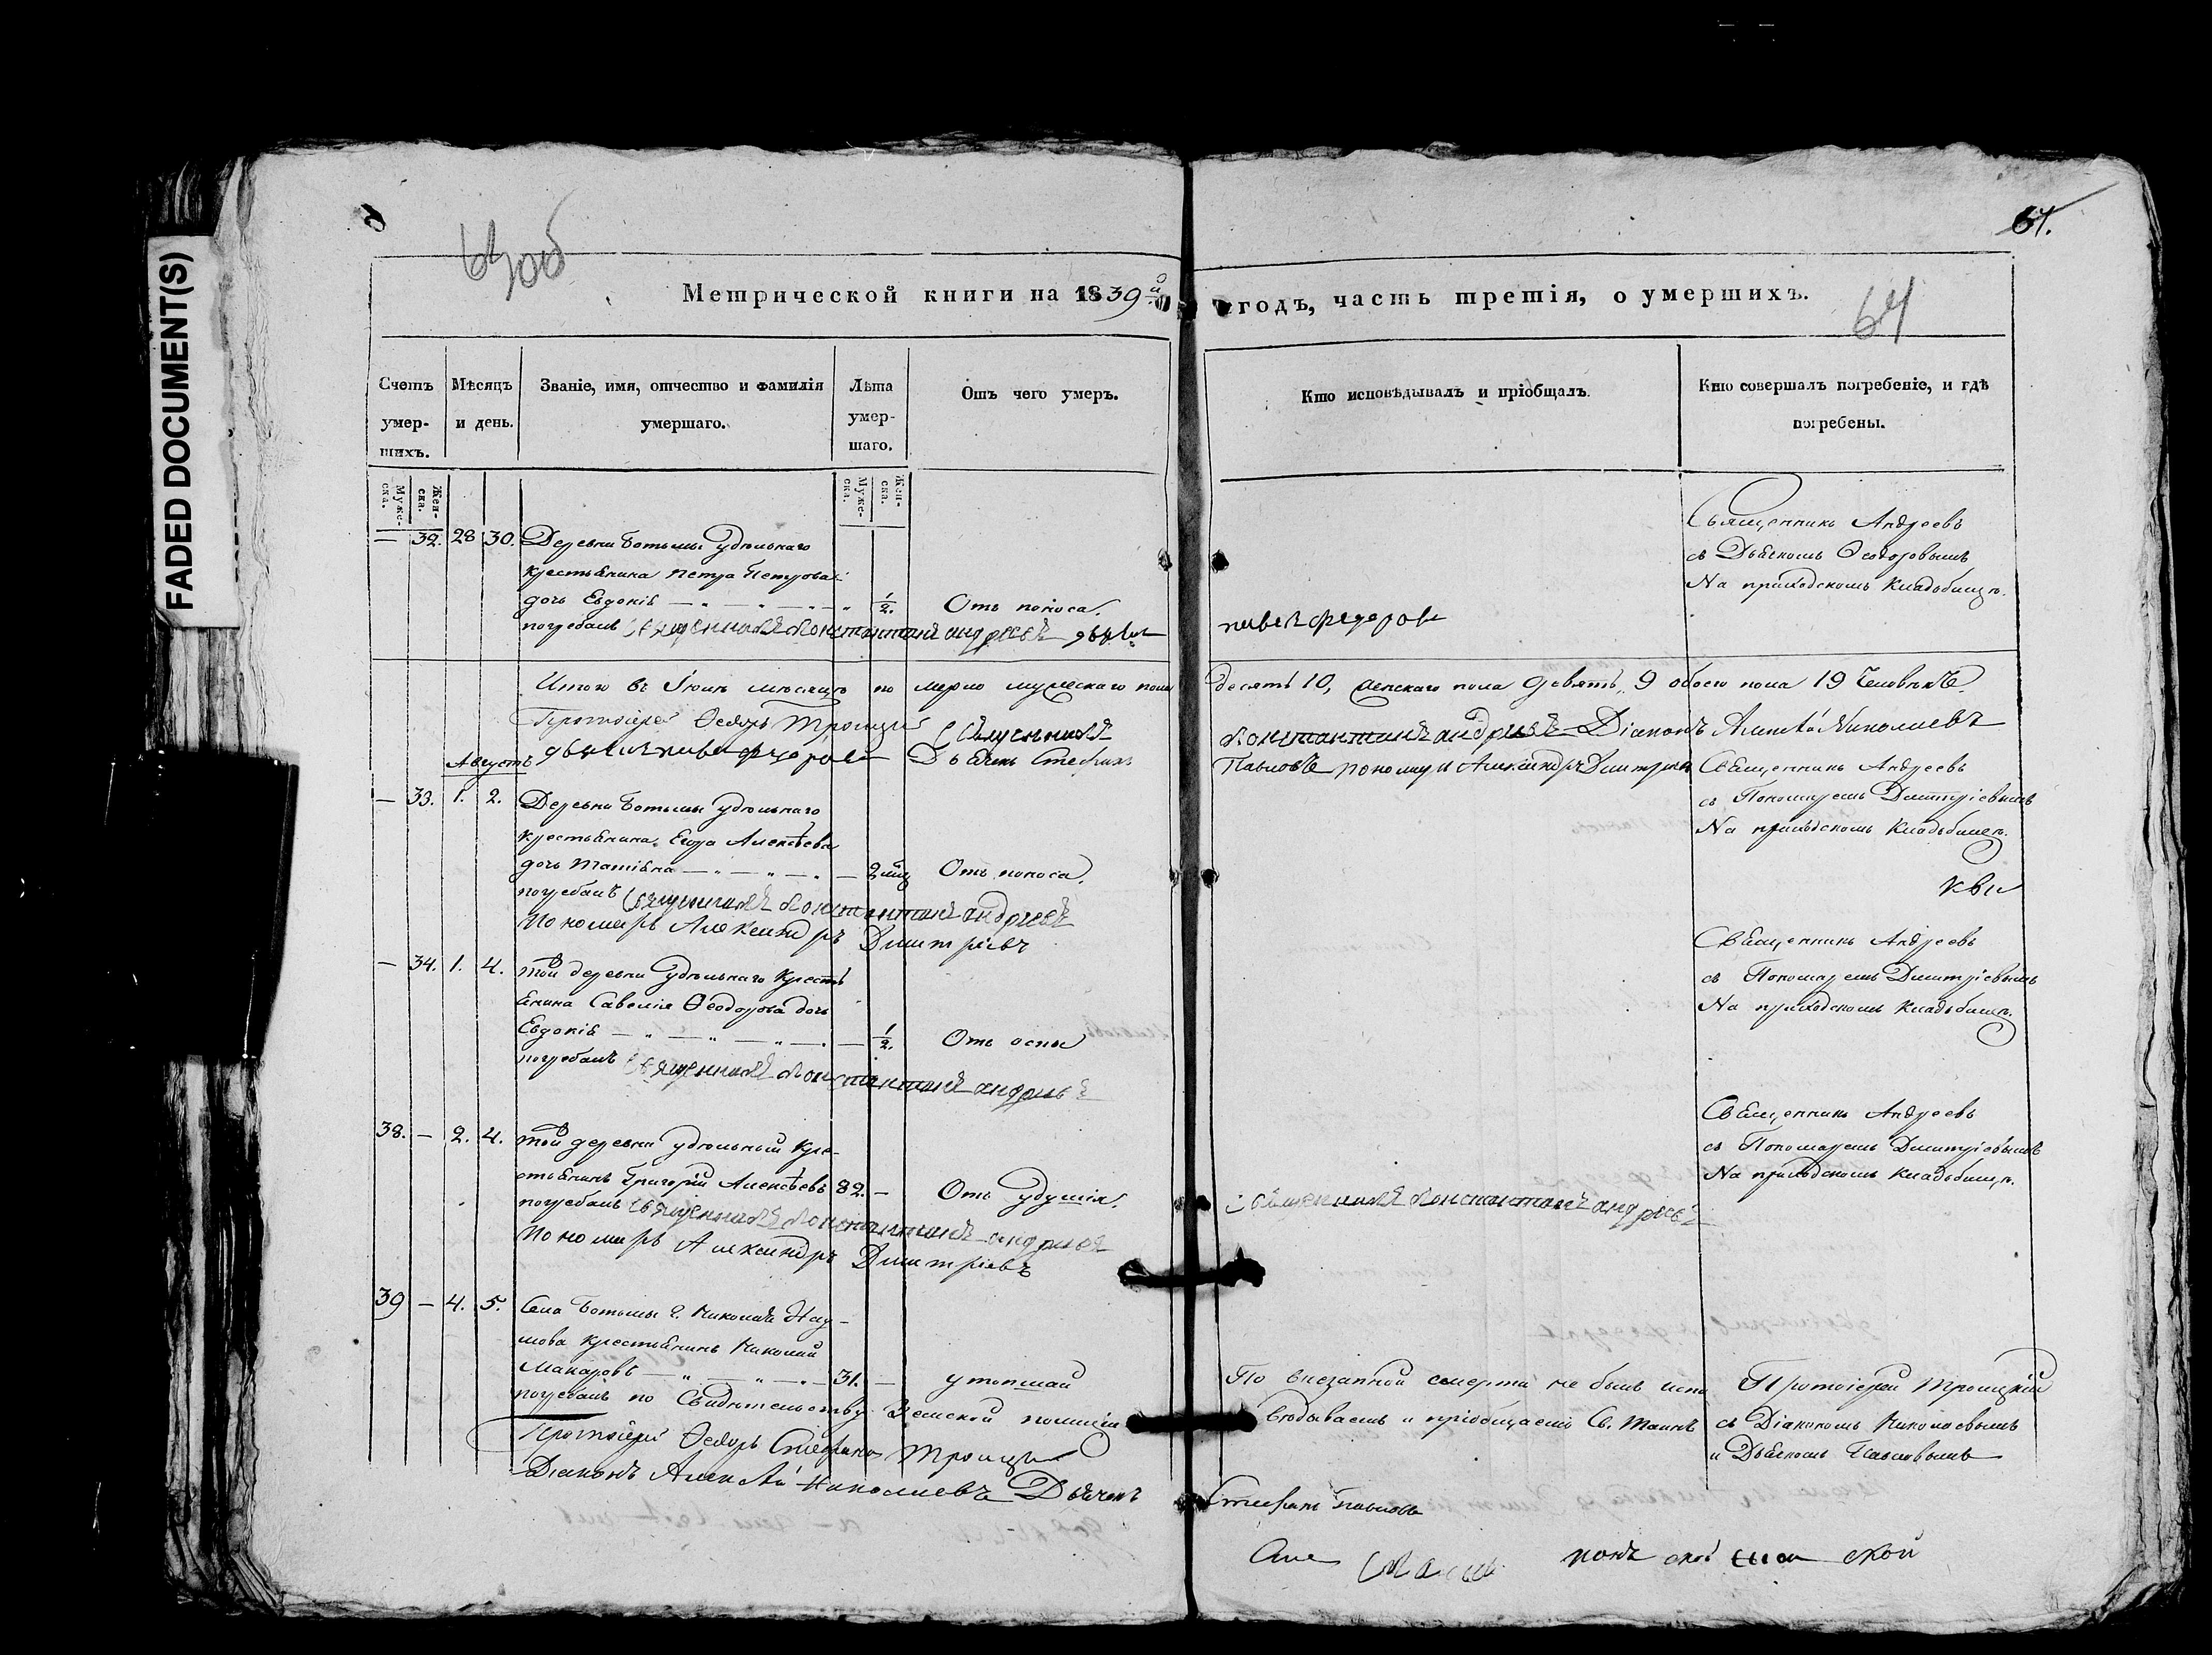 FADED DOCUMENT(S)
63об
61.
64
Метрической книги на 1839й годъ, часть третія, о умершихъ.
Счетъ умер-шихъ.
Мѣсяцъ и день.
Званіе, имя, отчество и фамилія умершаго.
Лѣта умер-шаго.
Отъ чего умеръ.
Кто исповѣдывалъ и пріобщалъ.
Кто совершалъ погребеніе, и гдѣ погребены.
Муже-ска.
Жен-ска.
Муже-ска.
Жен-ска.
— 32. 28 30. Деревни Ботьмы удѣльнаго
крестьянина Петра Петрова
дочь Евдокія — 1/2. Отъ поноса.
погребалъ священникъ константинъ андреевъ дьячек
павел федоров
Священникъ Андреевъ
съ Дьячкомъ Ѳеодоровымъ
На приходскомъ Кладбищѣ.
Итого въ Іюлѣ мѣсяцѣ по мерло мужескаго пола десять 10, женскаго пола девять, 9 обоего пола 19 Человѣкъ.
Протоіерей Ѳедоръ Троицкій священникъ константинъ андреевъ Діаконъ Алексѣй Николаевъ
дьячек павел федоров Дьячекъ Стефанъ Павловъ пономарь Александръ Дмитріевъ
Августъ
— 33. 1. 2. Деревни Ботьмы удѣльнаго
крестьянина Егора Алексѣева
дочь Татіяна — 2 Отъ поноса.
погребалъ священникъ константинъ андреевъ
Пономарь Александръ Дмитріевъ
Священникъ Андреевъ
съ Пономаремъ Дмитріевымъ
На приходскомъ Кладбищѣ.
— 34. 1. 4. Той деревни удѣльнаго Кресть
янина Савелія Ѳеодорова дочь
Евдокія — 1/2. Отъ оспы
погребалъ священникъ константинъ андреевъ
Священникъ Андреевъ
съ Пономаремъ Дмитріевымъ
На приходскомъ Кладбищѣ.
38. — 2. 4. Той деревни удѣльный Кре-
стьянинъ Григорій Алексѣевъ 82. — Отъ удушія.
погребалъ священникъ константинъ андреевъ
Пономарь Александръ Дмитріевъ
священникъ константинъ андреевъ
Священникъ Андреевъ
съ Пономаремъ Дмитріевымъ
На приходскомъ Кладбищѣ.
39 — 4. 5. Села Ботьмы Г. Николая Нау-
мова крестьянинъ Николай
Макаровъ — 31. — утопшай
погребалъ по Свидѣтельству Земской полиціи
Протоіерей Ѳедоръ Стефановъ Троицкій
Діаконъ Алексѣй Николаевъ Дьячекъ Стефанъ Павловъ
По внезапной смерти не былъ испо
вѣдываемъ и пріобщаемъ Св. Таинъ
Протоіерей Троицкій
съ Діакономъ Николаевымъ
и Дьячкомъ Павловымъ